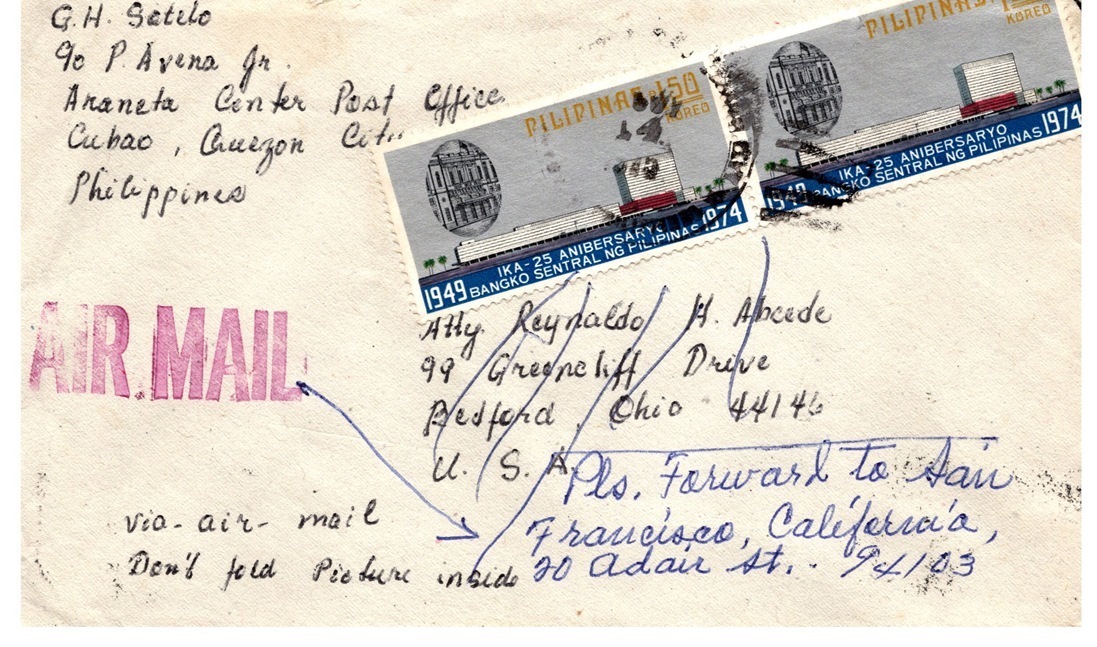 G.H. Sotelo
90 P. Avena Jr.
Araneta Center Post Office
Cubao, Quezon City
Philippines
PILIPINAS 1.50
KOREO
IKA-25 ANIBERSARYO
1949 BANGKO SENTRAL NG PILIPINAS 1974
PILIPINAS
KOREO
IKA-25 ANIBERSARYO
1949 BANGKO SENTRAL NG PILIPINAS 1974
AIR MAIL
Atty. Reynaldo H. Abcede
99 Greencliff Drive
Bedford, Ohio 44146
U. S. A.
Pls. Forward to San
Francisco, California,
20 Adair St. - 94103
via-air-mail
Don't fold Picture inside